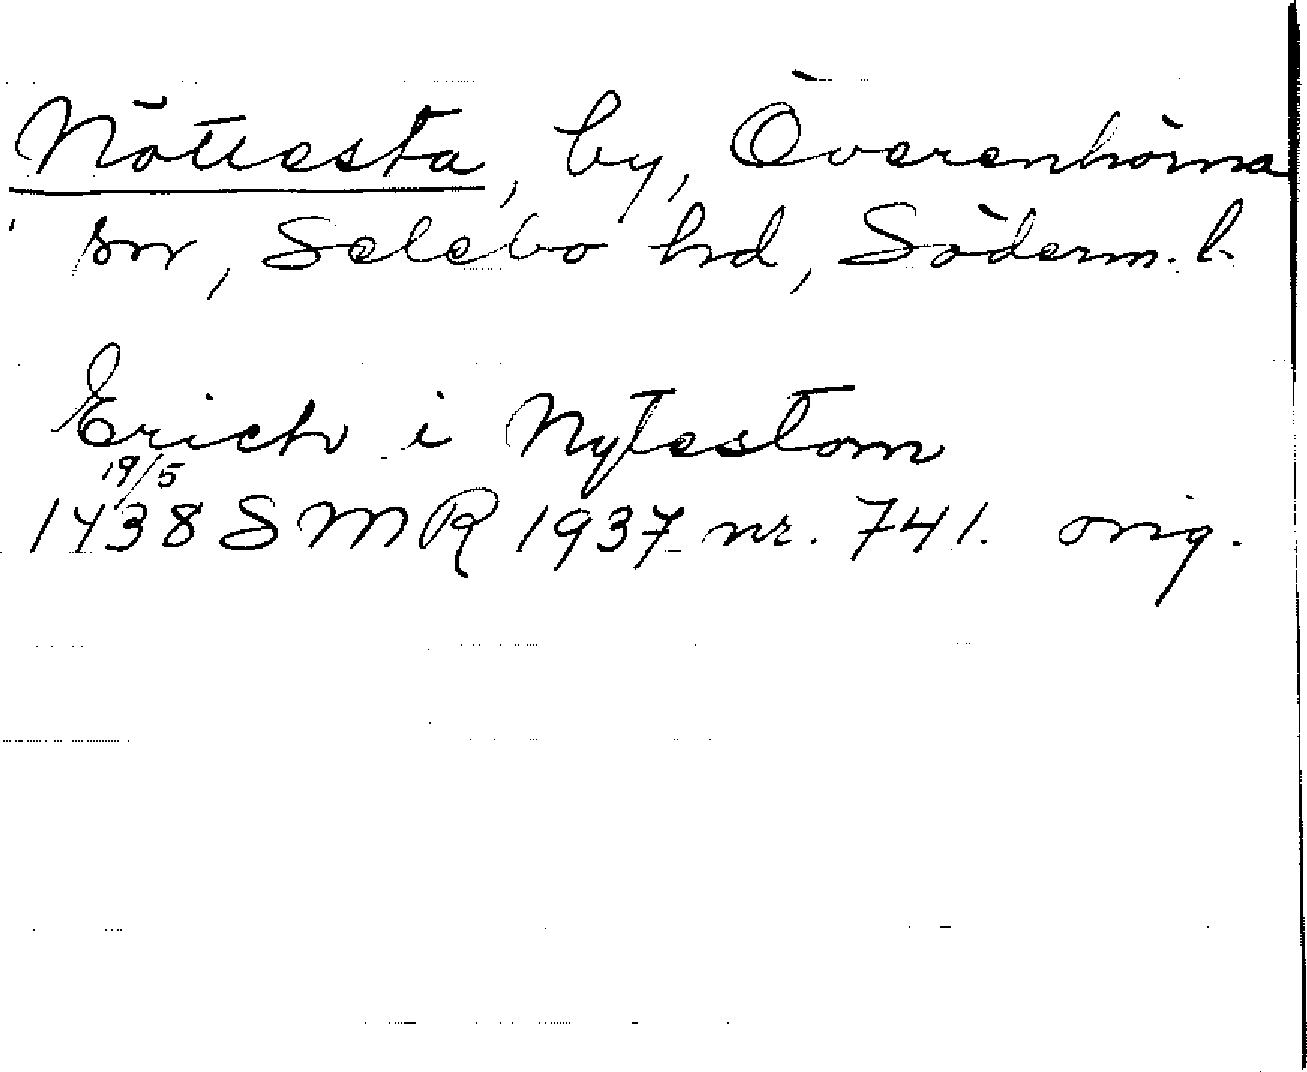 Nöttesta, by, Överenhörna
sn, Selebo hd, Söderm. l.
Erich i Nytestom
19/5
1438 SMR 1937 nr. 741. orig.